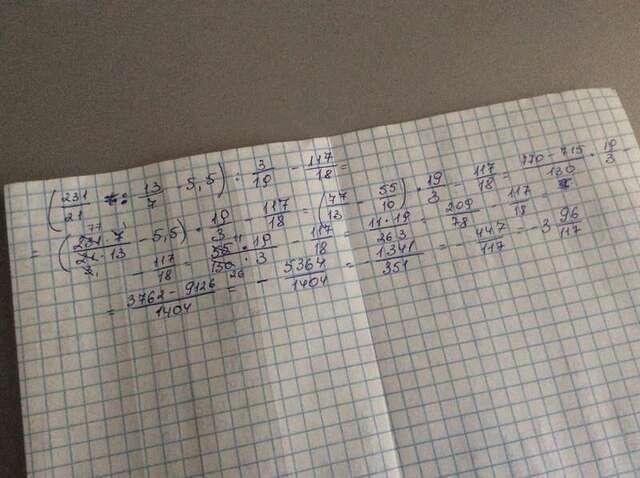 (231/21 : 13/7 - 5,5) : 3/19 - 117/18 =
= (231·7/21·13 - 5,5) · 19/3 - 117/18 = (77/13 - 55/10) · 19/3 - 117/18 = 770-715/130 · 19/3
- 117/18 = 55/130 · 19/3 - 117/18 = 11·19/26·3 = 209/78 - 117/18 =
= 3762-9126/1404 = - 5364/1404 = 1341/351 = - 447/117 = -3 96/117